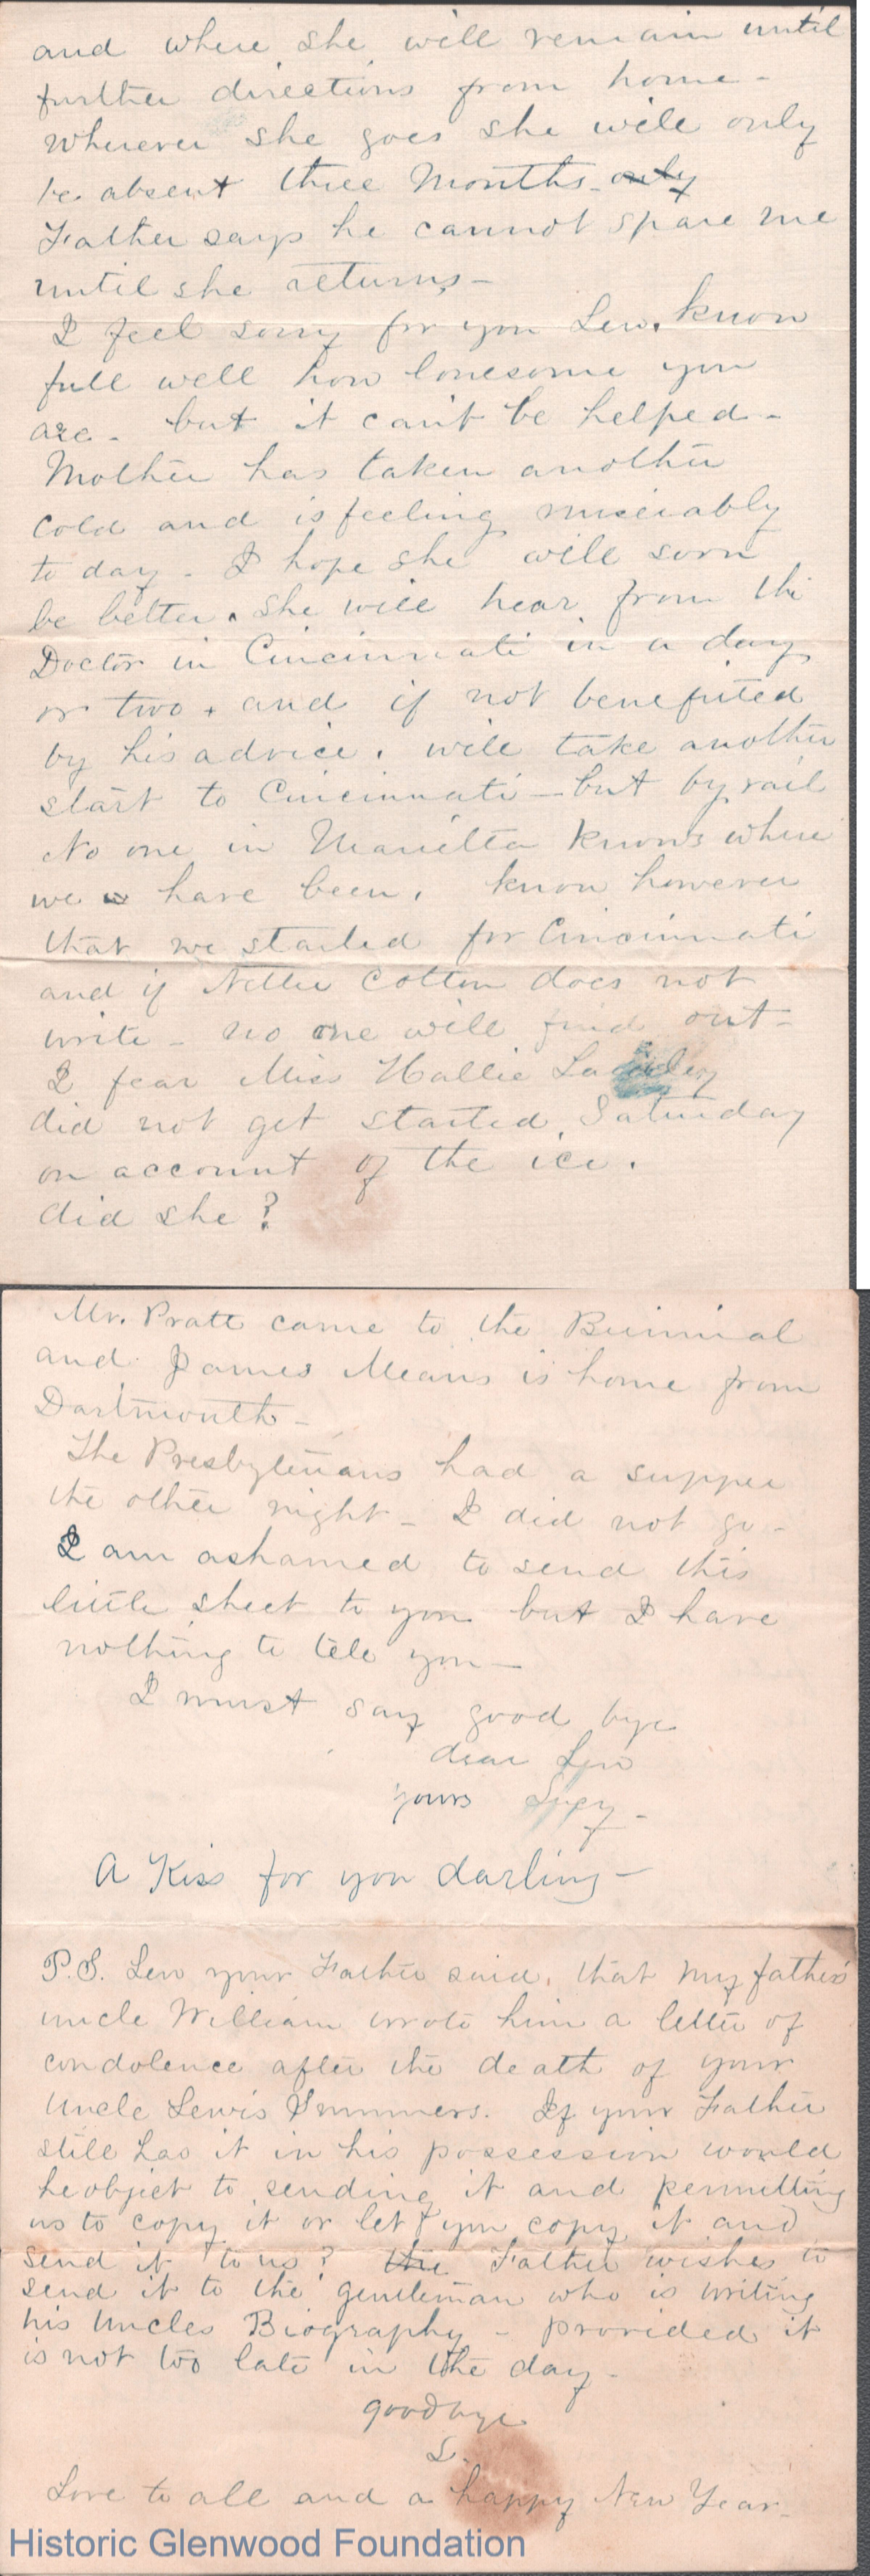 and where she will remain until
further directions from home -
Wherever she goes she will only
be absent three Months - only
Father says he cannot spare me
until she returns -
I feel sorry for you Lew. know
full well how lonesome you
are - but it can't be helped -
Mother has taken another
cold and is feeling miserably
to day - I hope she will soon
be better. She will hear from the
Doctor in Cincinnati in a day
or two, and if not benefited
by his advice, will take another
start to Cincinnati - but by rail
No one in Marietta knows where
we have been, know however
that we started for Cincinnati
and if Nellie Cotton does not
write - no one will find out -
I fear Miss Hallie
did not get started Saturday
on account of the ice.
did she?
Mr. Pratt came to the Biennial
and James Means is home from
Dartmouth -
The Presbyterians had a supper
the other night - I did not go -
I am ashamed to send this
little sheet to you but I have
nothing to tell you -
I must say good bye
dear Lew
yours Lucy -
A Kiss for you darling -
P.S. Lew your Father said, that my father's
uncle William wrote him a letter of
condolence after the death of your
Uncle Lewis Summers. If your Father
still has it in his possession would
he object to sending it and permitting
us to copy it or let you copy it and
send it to us? the Father wishes to
send it to the gentleman who is writing
his Uncles Biography - provided it
is not too late in the day -
goodbye
L.
Love to all and a happy New Year -
Historic Glenwood Foundation